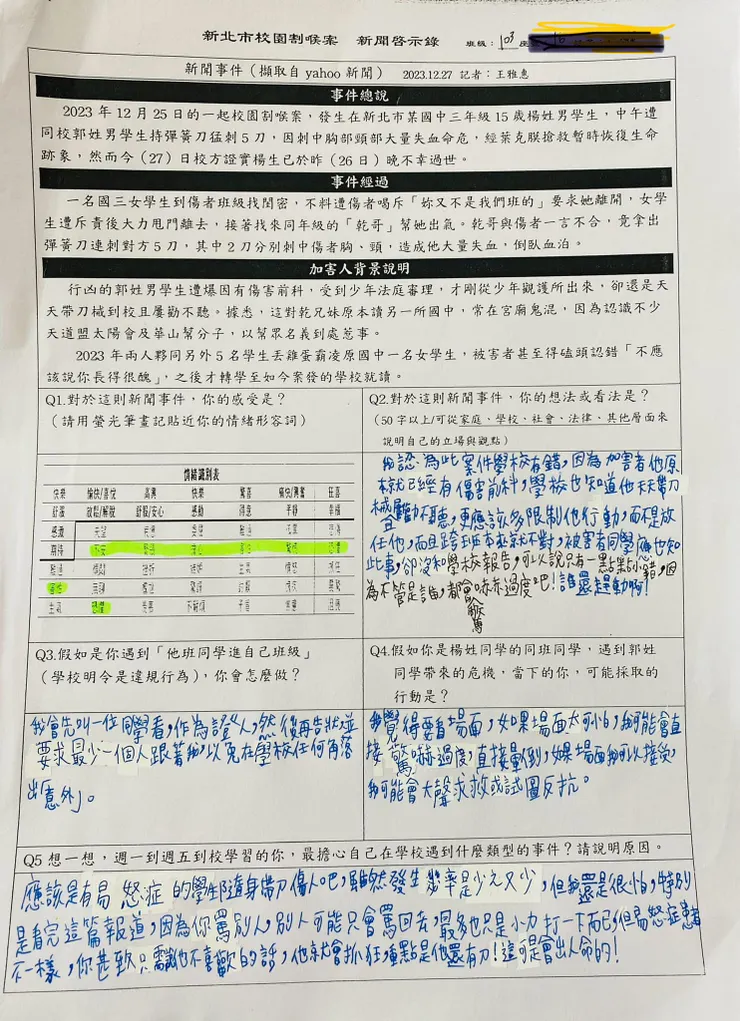 新北市校園割喉案　新聞啓示錄　班級：103 座
新聞事件（擷取自 yahoo 新聞）　2023.12.27 記者：王雅惠
事件總說
2023 年 12 月 25 日的一起校園割喉案，發生在新北市某國中三年級 15 歲楊姓男學生，中午遭
同校郭姓男學生持彈簧刀猛刺 5 刀，因刺中胸部頸部大量失血命危，經葉克膜搶救暫時恢復生命
跡象，然而今（27）日校方證實楊生已於昨（26 日）晚不幸過世。
事件經過
一名國三女學生到傷者班級找閨密，不料遭傷者喝斥「妳又不是我們班的」要求她離開，女學
生遭斥責後大力甩門離去，接著找來同年級的「乾哥」幫她出氣。乾哥與傷者一言不合，竟拿出
彈簧刀連刺對方 5 刀，其中 2 刀分別刺中傷者胸、頸，造成他大量失血，倒臥血泊。
加害人背景說明
行凶的郭姓男學生遭爆因有傷害前科，受到少年法庭審理，才剛從少年觀護所出來，卻還是天
天帶刀械到校且屢勸不聽。據悉，這對乾兄妹原本讀另一所國中，常在宮廟鬼混，因為認識不少
天道盟太陽會及華山幫分子，以幫眾名義到處惹事。
2023 年兩人夥同另外 5 名學生丟雞蛋霸凌原國中一名女學生，被害者甚至得磕頭認錯「不應
該說你長得很醜」，之後才轉學至如今案發的學校就讀。
Q1.對於這則新聞事件，你的感受是？
（請用螢光筆畫記貼近你的情緒形容詞）
情緒識別表
快樂 愉快/喜悅 高興 快樂 驚喜 痛快/興奮 狂喜
舒適 放鬆/解脫 舒服/安心 感動 得意 平靜 幸福
感激
期待 不安
害怕 無聊
生氣 恐懼
Q2.對於這則新聞事件，你的想法或看法是？
（50 字以上/可從家庭、學校、社會、法律、其他層面來
說明自己的立場與觀點）
我認為此案件學校有錯，因為加害者他原
本就已經有傷害前科，學校也知道他天天帶刀
械且屢勸不聽，更應該多限制他行動，而不是放
任他，而且跨到班本來就不對，被害者有同學應也知
此事，卻沒和學校報告，可以說只有一點點小錯，因
為不管是誰，都會被嚇赤赤過度吧！誰還趕動啊！
Q3.假如是你遇到「他班同學進自己班級」
（學校明令是違規行為），你會怎麼做？
我會先叫一位同學看，作為證人，然後再告狀並
要求最少一個人跟著我，以免在學校任何角落
出「意外」。
Q4.假如你是楊姓同學的同班同學，遇到郭姓
同學帶來的危機，當下的你，可能採取的
行動是？
我覺得要看場面，如果場面太可怕，我可能會直
接驚嚇過度，直接暈倒，如果場面我可以接受，
我可能會大聲求救或試圖反抗。
Q5 想一想，週一到週五到校學習的你，最擔心自己在學校遇到什麼類型的事件？請說明原因。
應該是有易怒症的學生隨身帶刀傷人吧，雖然發生機率是少之又少，但我還是很怕，特別
是看完這篇報道，因為你罵別人，別人可能只會罵回去，最多也只是小力打一下而已，但易怒症患者
不一樣，你甚至只需說他不喜歡的話，他就會抓狂，重點是他還有刀！這可是會出人命的！